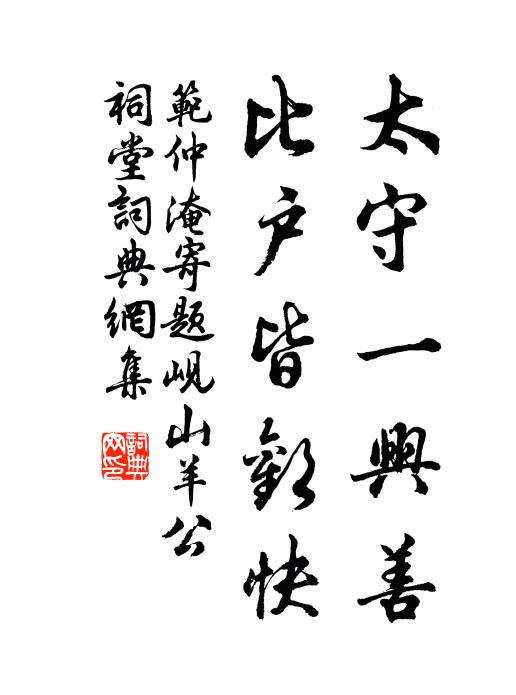 太守一興善
比户皆歡快
範仲淹寄題峴山羊公
祠堂詞典網集
詞典
网印